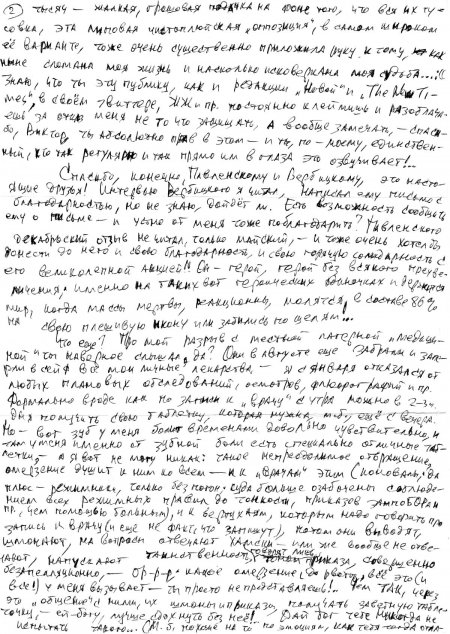 ② тысяч – жалкая, грошовая подачка на фоне того, что вся их ту-
совка, эта липовая чистоплюйская „оппозиция", в самом широком
её варианте, тоже очень существенно приложила руку к тому, как
ныне сломана моя жизнь и насколько исковеркана моя судьба...
Знаю, что ты эту публику, как и редакции „Новой" и „The New Ti-
mes", в своём твиттере, ЖЖ и пр. постоянно клеймишь и разоблача-
ешь за отказ меня не то что защищать, а вообще замечать, – спаси-
бо, Виктор, ты абсолютно прав в этом – и ты, по-моему, единствен-
ный, кто так регулярно и так прямо им в глаза это озвучивает!..
Спасибо, конечно, Павленскому и Вербицкому, это насто-
ящие друзья! Интервью Вербицкого я читал, написал ему письмо с
благодарностью, но не знаю, дойдёт ли. Есть возможность сообщить
ему о письме – и устно от меня тоже поблагодарить? Павленского
декабрьский отзыв не читал, только майский, – и тоже очень хотел бы
донести до него и свою благодарность, и свою горячую солидарность с
его великолепной акцией!! Он – герой, герой без всякого преуве-
личения. Именно на таких вот героических одиночках и держится
мир, когда массы мертвы, реакционны, молятся в составе 86%
на свою плешивую икону или забились по щелям...
Что ещё? Про мой разрыв с местной лагерной „медици-
ной" ты наверное слышал, да? Они в августе ещё забрали и запе-
рли в сейф все мои личные лекарства – я с января отказался от
любых плановых обследований, осмотров, флюорографий и пр.
Формально вроде как по записи к „врачу" с утра можно в 2-3ч.
дня получить свою таблетку, которая нужна, м.б., ещё с вечера.
Но – вот зуб у меня болит временами довольно чувствительно, и
там у меня именно от зубной боли есть специально отличные таб-
летки, – а я вот не могу никак: такое непреодолимое отвращение,
омерзение душит к ним ко всем – и к „врачам" этим (коновалы, да
плюс – режимники, только без погон: куда больше озабочены соблюде-
нием всех режимных правил до тонкости, приказов
пр., чем помощью больным), и к вертухаям, которым надо говорить про
запись к врачу (и ещё не факт, что запишут), потом они выводят,
шмонают, на вопросы отвечают хамски – или же вообще не отве-
чают, напускают таинственность, приказа, совершенно
безапелляционно, – бр-р-р какое омерзение, до рвоты, всё это (и
все!) у меня вызывает – ты просто не представляешь!.. Чем так, через
это „общение" с ними, их шмоны и приказы, получать заветную табле-
точку, – ей-богу, лучше сдохнуть без неё! Дай бог тебе никогда не
испытать такого... (М.б., похоже на то по эмоциям, как тебя тогда